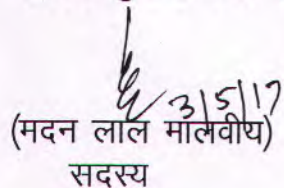 3/5/17
(मदन लाल मालवीय)
सदस्य